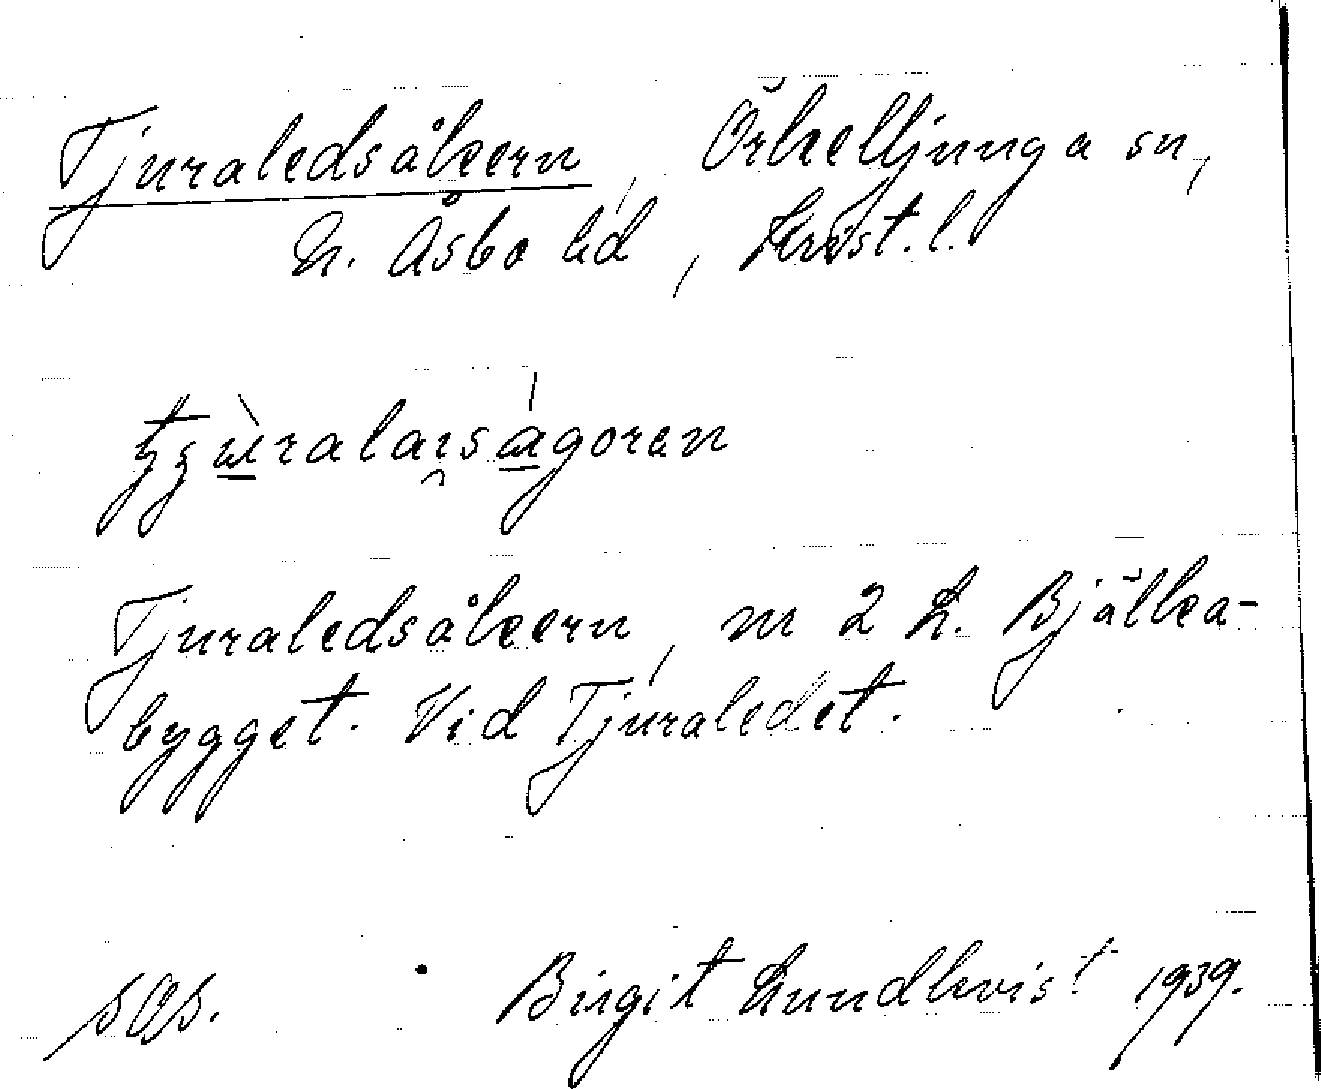 Tjuraledsåkern, Örkelljunga sn,
N. Åsbo hd, Krist. l.
Tjuraledsåkern, nr 2 L. Bjälka-
bygget. Vid Tjuraledet.
sOs. Birgit Lundkvist 1939.